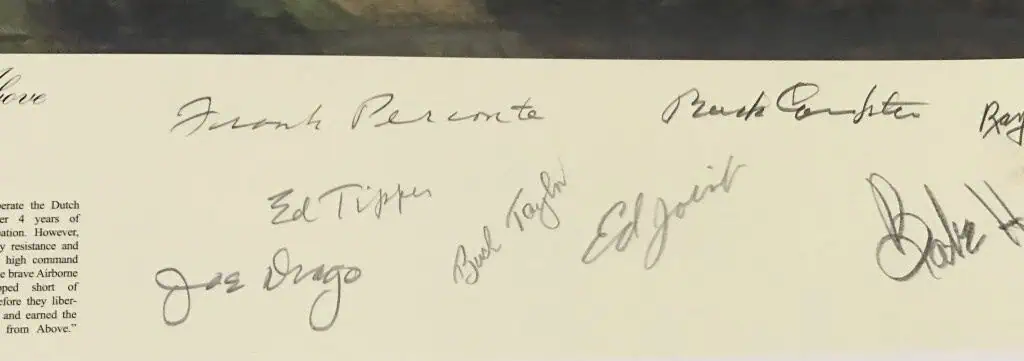 bove
Frank Perconte
Buck Compton
Ray
Ed Tipper
Buck Taylor
Ed Joint
Joe Drago
Babe H
erate the Dutch
er 4 years of
ation. However,
y resistance and
high command
e brave Airborne
pped short of
efore they liber-
and earned the
from Above."